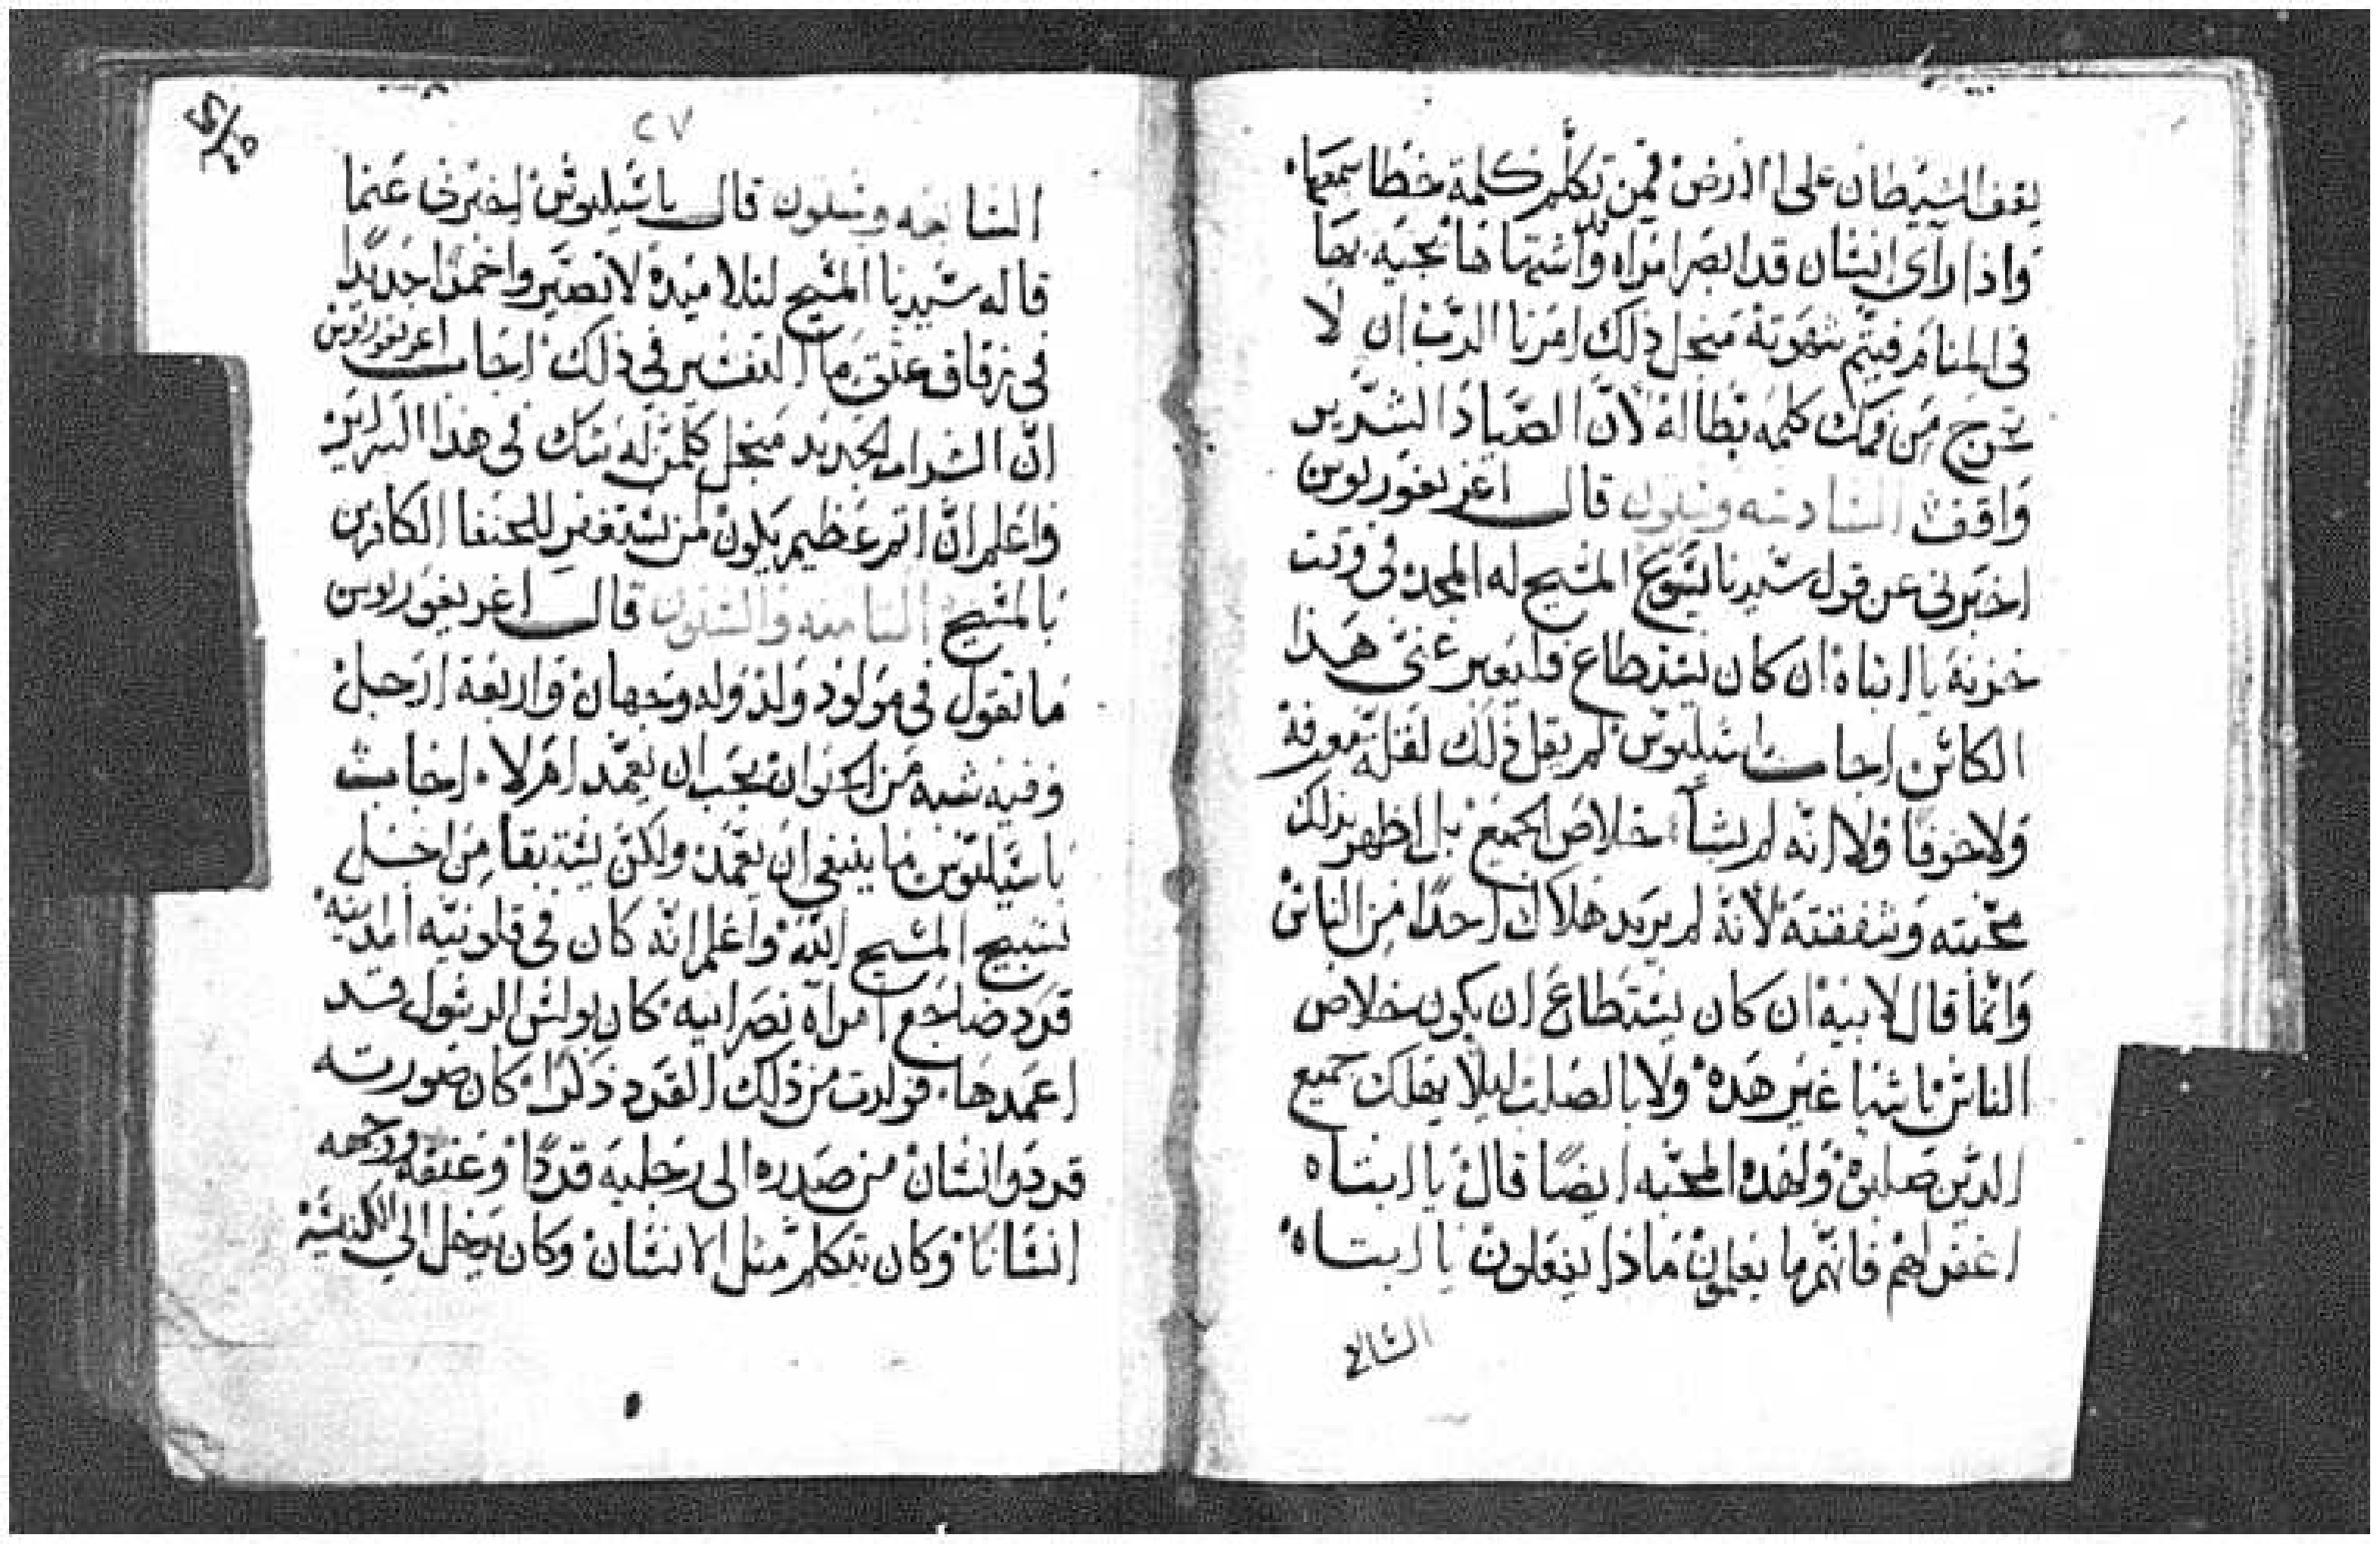 يقف الشيطان على الارض فمن تكلم كلمة خطا سمعها
واذا رآي انسان قد ابصر امراه واشتهاها نجيه بها
في المنام فيتم شهوته منجل ذلك امرنا الرب ان لا
تخرج من فمك كلمه بطاله لأن الصياد الشرير
واقف السادسه وستون قال اغريغوريوس
اخبرني عن قول سيدنا يسوع المسيح له المجد في وقت
حزنه يا ابتاه ان كان يستطاع فليعبر عني هذا
الكائس اجاب باسيليوس لم يقل ذلك لقلة معرفة
ولا خوفا ولا انه لم يشأ خلاص الجميع بل اظهر بذلك
محبته وشفقته لأنه لم يريد هلاك احدا من الناس
وانما قال لابيه ان كان يستطاع ان يكون خلاص
الناس باشيا غير هذه ولا بالصلب ليلا يهلك جميع
الدين صلبوه ولهده المحبه ايضا قال يا ابتاه
اغفر لهم فانهم ما يعلمون ماذا يفعلون يا ابتاه
٢٧
السابعه وستون قال باسيليوس اخبرني عنما
قاله سيدنا المسيح لتلاميده لا تصيروا خمرا جديدا
في زقاق عتق ما التفسير في ذلك اجاب اغريغوريوس
ان الشراب الجديد منجل كلمن له شك في هذا السراير
فاعلم ان اتم عظيم يكون لمن يستغفر للحنفا الكافرين
بالمسيح الثامنه والستون قال اغريغوريوس
ما تقول في مولود ولد وله وجهان واربعة ارجل
وفيه شبه من الحيوان يجب ان يعمد ام لا اجاب
باسيليوس ما ينبغي ان يعمد ولكن يستبقا من اجل
تسبيح المسيح الله واعلم انه كان في قلونيه المدينه
قرد ضاجع امراة نصرانيه كان بولس الرسول قد
اعمدها فولدت من ذلك القرد ذكرا كان صورته
قرد وانسان من صدره الى رجليه قردا وعنقه ووجهه
انسانا وكان يتكلم مثل الانسان وكان يدخل الي الكنيسة